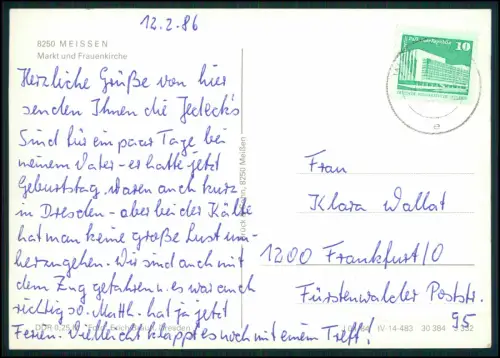 12.2.86
8250 MEISSEN
Markt und Frauenkirche
Herzliche Grüße von hier
senden Ihnen die Jedeck's
Sind für ein paar Tage bei
meinem Vater - er hatte jetzt
Geburtstag, waren auch kurz
in Dresden - aber bei der Kälte
hat man keine große Lust um-
herzugehen. Wir sind auch mit
dem Zug gefahren u. es war auch
richtig so. Matth. hat ja jetzt
Ferien. Vielleicht klappt es noch mit einem Treff!
10
Frau
Klara Wallat
1200 Frankfurt/O
Fürstenwalder Poststr.
95
8250 Meißen
DDR 0,25 M
Dresden
IV-14-483 30 384